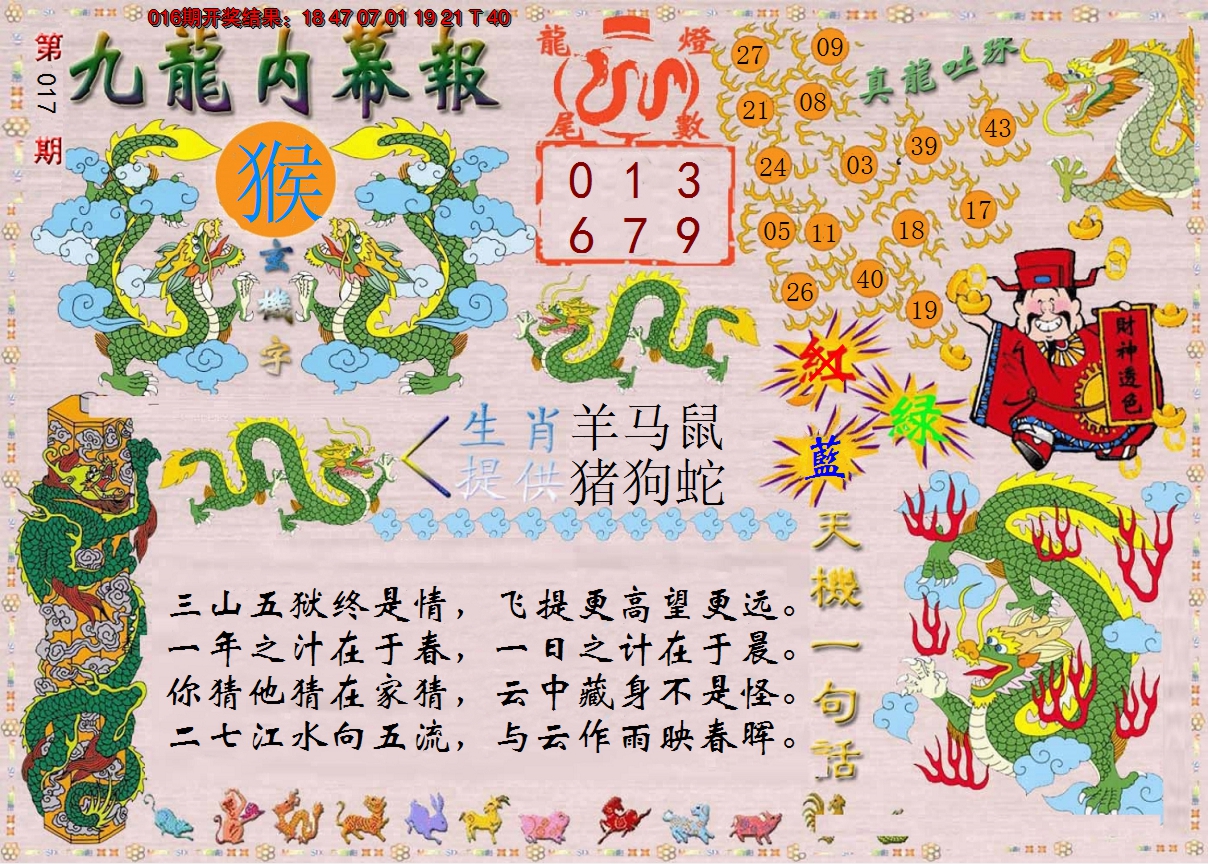 016期开奖结果：18 47 07 01 19 21 T 40
第017期
九龍内幕報
猴
玄機字
龍燈
尾數
0 1 3
6 7 9
真龍吐珠
27 09
21 08
24 03 39 43
05 11 18 17
26 40 19
財神透色
紅
綠
藍
生肖提供
羊马鼠
猪狗蛇
天機一句話
三山五狱终是情，飞提更高望更远。
一年之汁在于春，一日之计在于晨。
你猜他猜在家猜，云中藏身不是怪。
二七江水向五流，与云作雨映春晖。